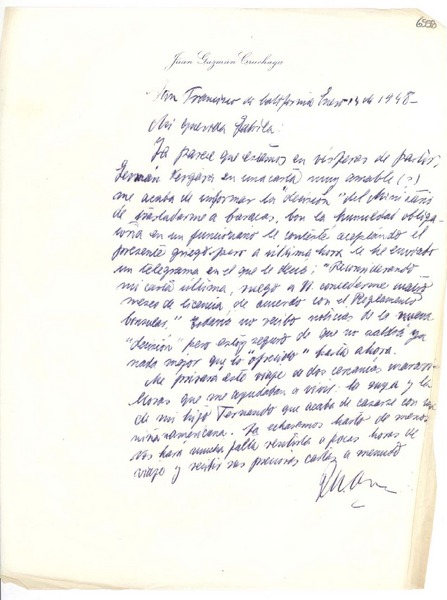 6558
Juan Guzmán Cruchaga
San Francisco de California Enero 14 de 1948-
Mi querida Gabriela:
Ya parece que estamos en vísperas de partir,
Germán Vergara en una carta muy amable (?)
me acaba de informar la "decisión" del Ministerio
de trasladarme a Caracas, con la humildad obliga-
toria en un funcionario le contesté aceptando el
presente griego pero a última hora le he enviado
un telegrama en el que le decía: "Reconsiderando
mi carta última, ruego a U. concederme cuatro
meses de licencia de acuerdo con el Reglamento
Consular." Todavía no recibo noticias de la nueva
"decisión" pero estoy seguro de que no saldrá ga-
nado mejor que lo "ofrecido" hasta ahora.
Me privará este viaje de dos cercanías maravi-
llosas que me ayudaban a vivir: la suya y la
de mi hijo Fernando que acaba de casarse con una
niña americana. La echaremos harto de menos
nos hará mucha falta sentirla a pocas horas de
viaje y recibir sus preciosas cartas a menudo
Juan